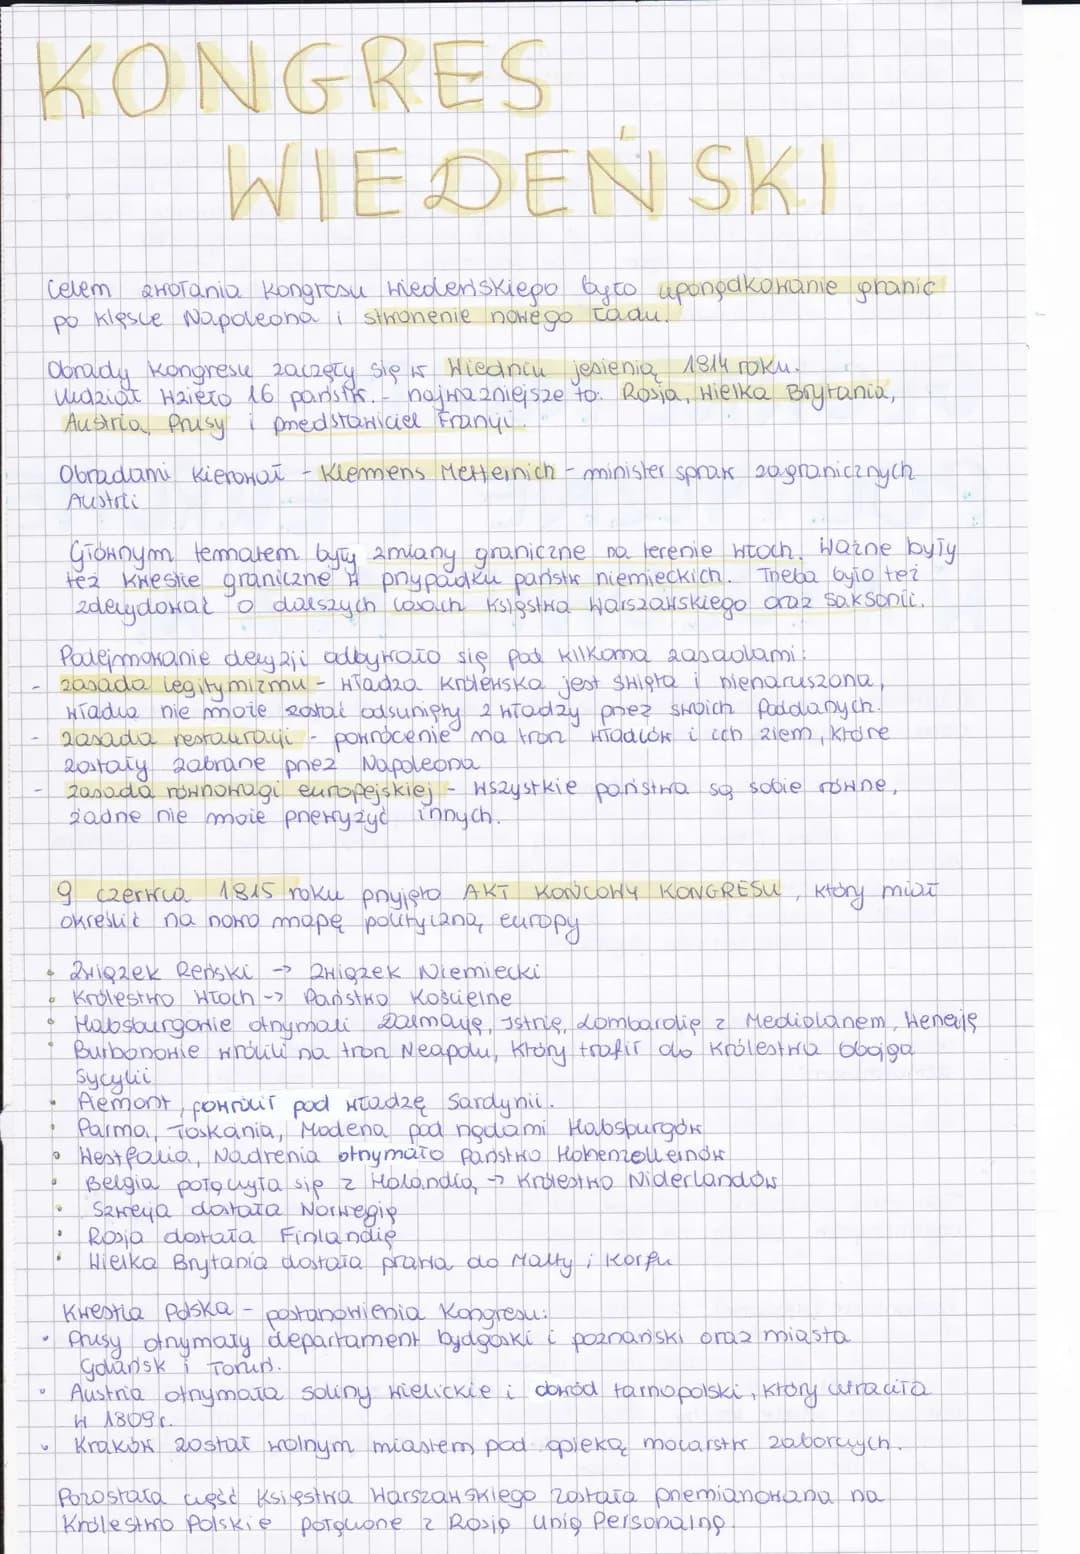 KONGRES
WIEDEŃSKI
Celem zwołania Kongresu wiedeńskiego było uporządkowanie granic
po klęsce Napoleona i stworzenie nowego ładu.
Obrady Kongresu zaczęły się w Wiedniu jesienią 1814 roku.
Udział wzięło 16 państw. - najważniejsze to: Rosja, Wielka Brytania,
Austria, Prusy i przedstawiciel Francji.
Obradami kierował - Klemens Metternich - minister spraw zagranicznych
Austrii
Głównym tematem były zmiany graniczne na terenie Włoch. Ważne były
też kwestie graniczne w przypadku państw niemieckich. Trzeba było też
zdecydować o dalszych losach Księstwa Warszawskiego oraz Saksonii.
Podejmowanie decyzji odbywało się pod kilkoma zasadami:
- zasada legitymizmu - władza królewska jest święta i nienaruszona,
władca nie może zostać odsunięty z władzy przez swoich poddanych.
- zasada restauracji - powrócenie na tron władców i ich ziem, które
zostały zabrane przez Napoleona
- zasada równowagi europejskiej - wszystkie państwa są sobie równe,
żadne nie może przewyżyć innych.
9 czerwca 1815 roku przyjęto AKT KOŃCOWY KONGRESU, który miał
określić na nowo mapę polityczną europy
• Związek Reński -> Związek Niemiecki
• Królestwo Włoch -> Państwo Kościelne
• Habsburgowie otrzymali Dalmację, Istrię, Lombardię z Mediolanem, Wenecję
• Burbonowie wrócili na tron Neapolu, który trafił do Królestwa Obojga
Sycylii
• Piemont, powrócił pod władzę Sardynii.
• Parma, Toskania, Modena pod rządami Habsburgów
• Westfalia, Nadrenia otrzymało państwo Hohenzollernów
• Belgia połączyła się z Holandią -> Królestwo Niderlandów
• Szwecja dostała Norwegię
• Rosja dostała Finlandię
• Wielka Brytania dostała prawa do Malty i Korfu
Kwestia Polska - postanowienia Kongresu:
• Prusy otrzymały departament bydgoski i poznański oraz miasta
Gdańsk i Toruń.
• Austria otrzymała soliny wielickie i obwód tarnopolski, który utraciła
w 1809 r.
• Kraków został wolnym miastem pod opieką mocarstw zaborczych.
Pozostała część Księstwa Warszawskiego została przemianowana na
Królestwo Polskie połączone z Rosją unią Personalną.